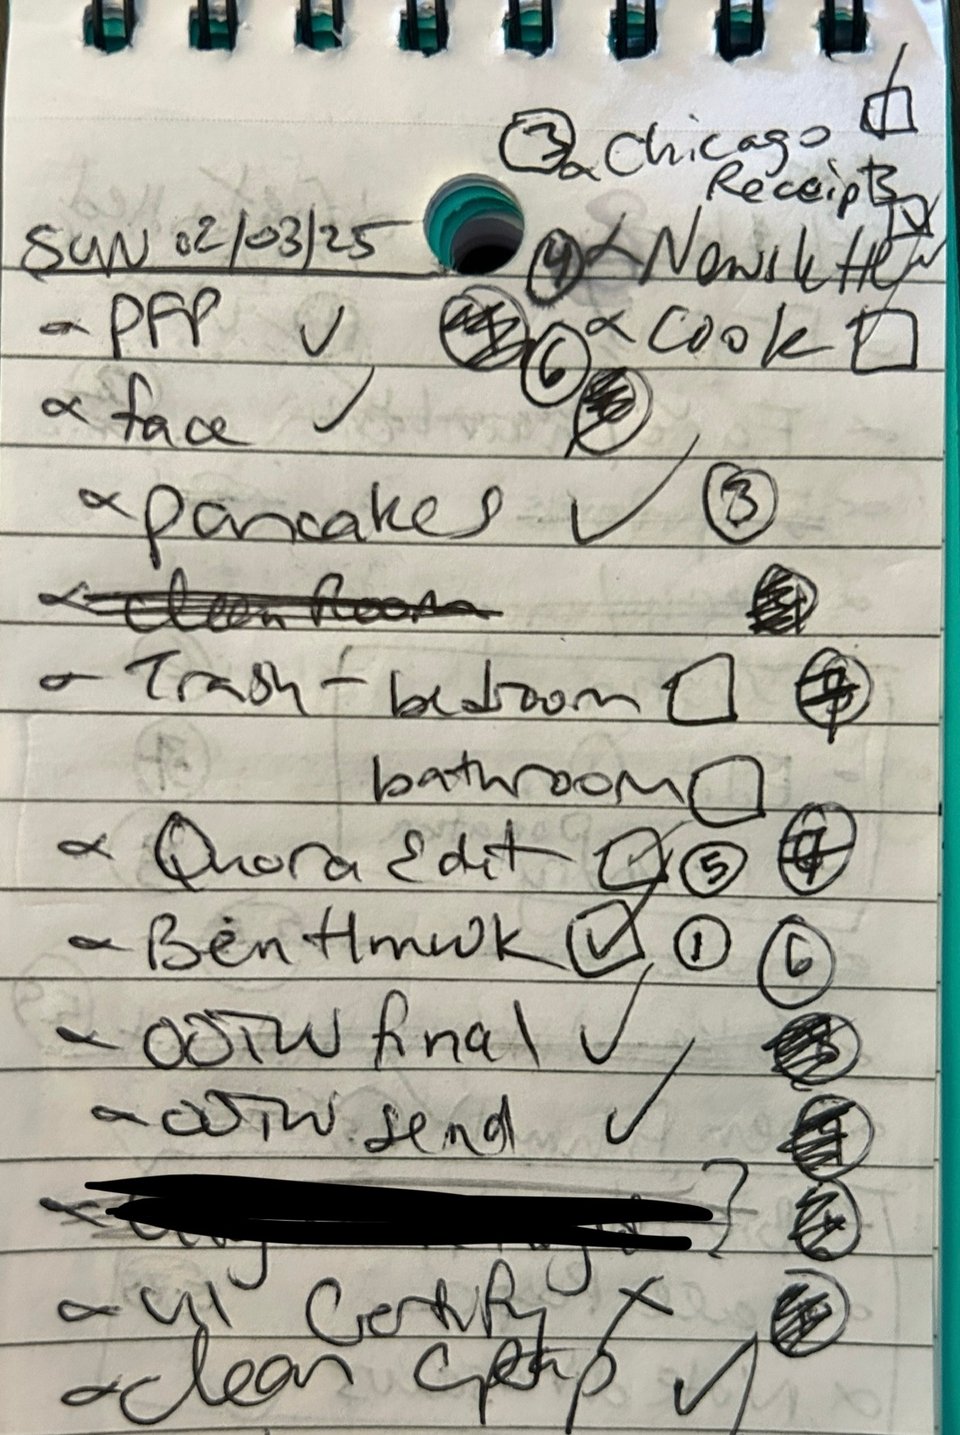 ③ ∝ Chicago
Receipts
SUN 02/03/25
④ ∝ Newslttr
∝ PFP ✓
⑥ ∝ Cook ☐
∝ face ✓
∝ pancakes ✓ ③
∝ Clean Room
∝ Trash - bedroom ☐
bathroom ☐
∝ Quora Edit ☑ ⑤
∝ Ben Hmwk ☑ ① ⑥
∝ OOTW final ✓
∝ OOTW send ✓
∝ UI Certify X
∝ Clean ✓